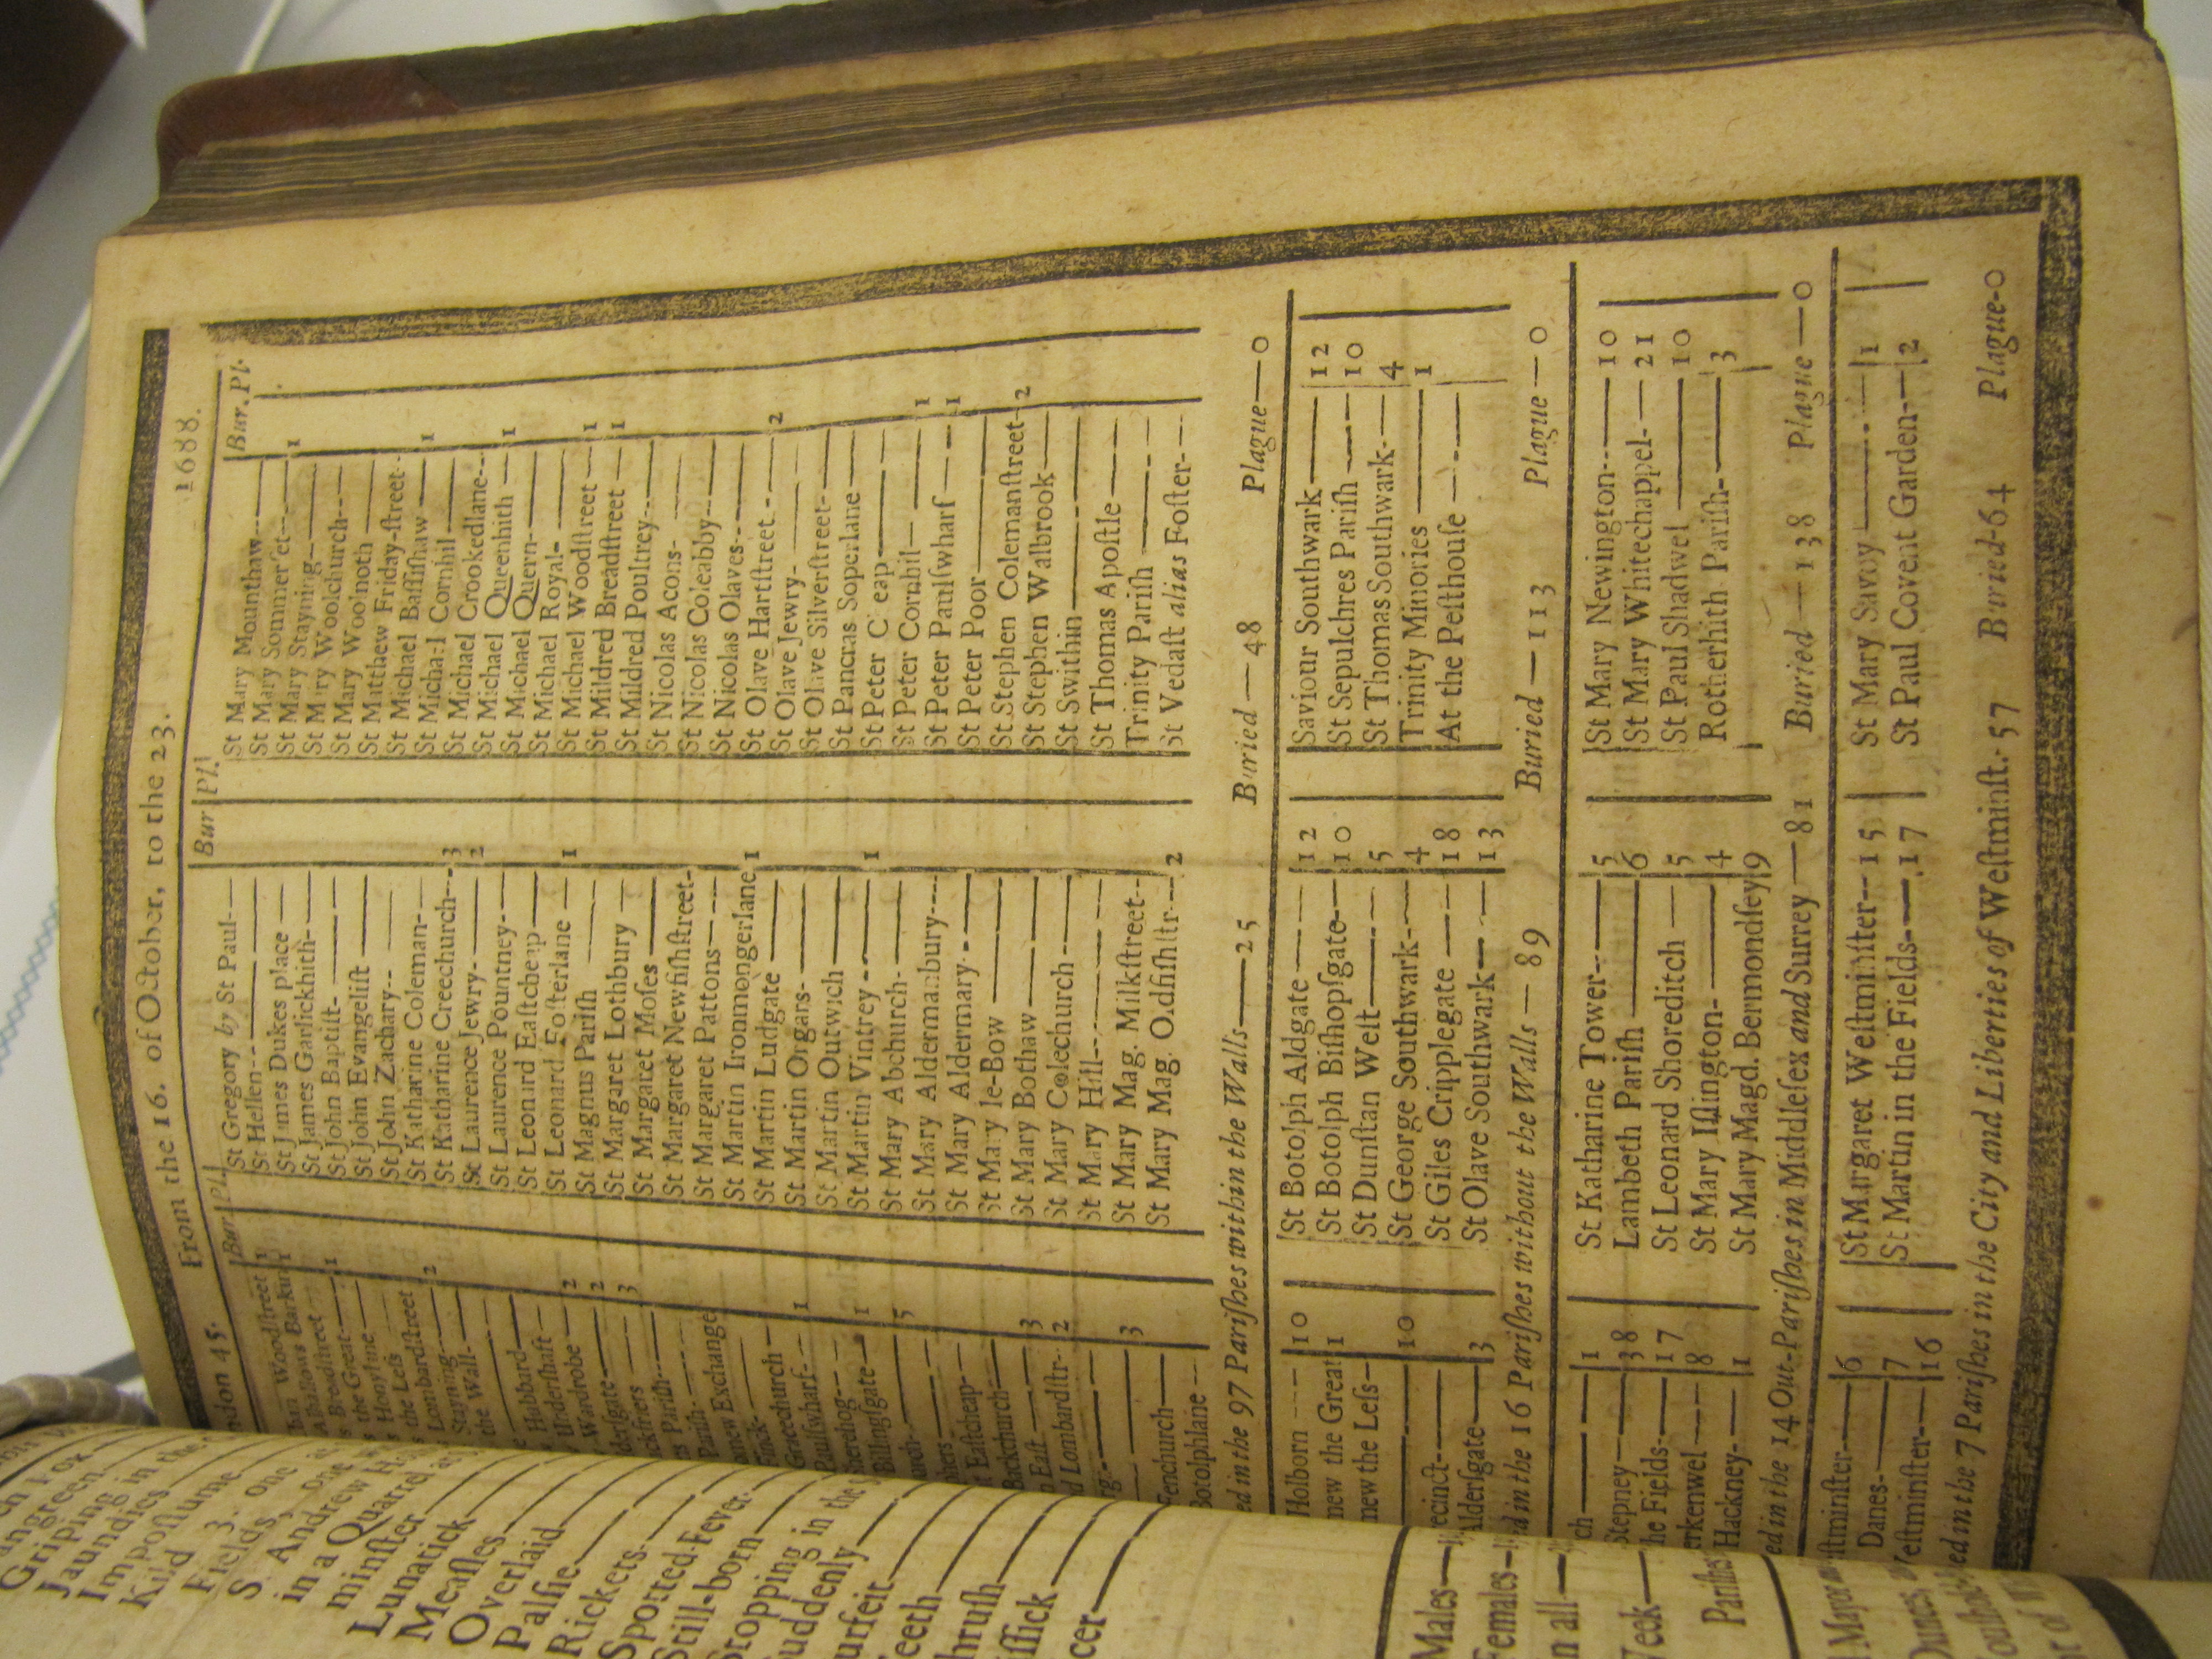 From the 16. of October, to the 23. 1688.
ndon 45.
Bur. Pl.
ban Woodstreet 1
Alhallows Barkin 1
Breadstreet
s the Great 1
Honylane
the Less
s Lombardstreet 2
Stayning
the Wall
Hubbard
Undershaft
Wardrobe 2
dersgate 2
ckfriers 3
s Parish
Parish
new Exchange
Finck
Gracechurch
Paulswharf 1
herehog
Billingsgate 1
5
hers
t Eastcheap
Backchurch
n East 3
d Lombardstr. 2
rg
3
Fenchurch
Botolphlane
Bur Pl.
St Gregory by St Paul
St Hellen
St James Dukes place
St James Garlickhith
St John Baptist
St John Evangelist
St John Zachary
St Katharine Coleman
St Katharine Creechurch 3
St Laurence Jewry 2
St Laurence Pountney
St Leonard Eastcheap
St Leonard Fosterlane 1
St Magnus Parish
St Margaret Lothbury
St Margaret Moses
St Margaret Newfishstreet
St Margaret Pattons
St Martin Ironmongerlane 1
St Martin Ludgate
St Martin Orgars
St Martin Outwich
St Martin Vintrey 1
St Mary Abchurch
St Mary Aldermanbury
St Mary Aldermary
St Mary le-Bow
St Mary Bothaw
St Mary Colechurch
St Mary Hill
St Mary Mag. Milkstreet
St Mary Mag. Oldfishstr 2
Bur. Pl.
St Mary Mounthaw
St Mary Sommerset 1
St Mary Stayning
St Mary Woolchurch
St Mary Woolnoth
St Matthew Friday-street
St Michael Bassishaw 1
St Michael Cornhil
St Michael Crookedlane
St Michael Queenhith 1
St Michael Quern
St Michael Royal
St Michael Woodstreet 1
St Mildred Breadstreet 1
St Mildred Poultrey
St Nicolas Acons
St Nicolas Coleabby
St Nicolas Olaves
St Olave Hartstreet 2
St Olave Jewry
St Olave Silverstreet
St Pancras Soperlane
St Peter C eap
St Peter Cornhil 1
St Peter Paulswharf 1
St Peter Poor
St Stephen Colemanstreet 2
St Stephen Walbrook
St Swithin
St Thomas Apostle
Trinity Parish
St Vedast alias Foster
ed in the 97 Parishes within the Walls 25 Buried 48 Plague 0
Holborn 10
new the Great 1
new the Less
10
recinct
Aldersgate 3
St Botolph Aldgate 12
St Botolph Bishopsgate 10
St Dunstan West 5
St George Southwark 4
St Giles Cripplegate 18
St Olave Southwark 13
Saviour Southwark 12
St Sepulchres Parish 10
St Thomas Southwark 4
Trinity Minories 1
At the Pesthouse
d in the 16 Parishes without the Walls 89 Buried 113 Plague 0
ch 1
Stepney 38
he Fields 17
erkenwel 8
Hackney 1
St Katharine Tower 5
Lambeth Parish 6
St Leonard Shoreditch 5
St Mary Islington 4
St Mary Magd. Bermondsey 9
St Mary Newington 10
St Mary Whitechappel 21
St Paul Shadwel 10
Rotherhith Parish 3
ed in the 14 Out-Parishes in Middlesex and Surrey 81 Buried 138 Plague 0
stminster 6
Danes 7
Westminster 16
St Margaret Westminster 15
St Martin in the Fields 17
St Mary Savoy 1
St Paul Covent Garden 2
ed in the 7 Parishes in the City and Liberties of Westminst. 57 Buried 64 Plague 0
angreen
Griping in the
Jaundies
Impostume
Kild 3. one at
Fields, one
S. Andrew
in a Quarrel
minster
Lunatick
Measles
Overlaid
Palsie
Rickets
Spotted-Fever
Still-born
Stopping in the
uddenly
urfeit
eeth
hrush
issick
cer
Males
Females
n all
Week
Parishes